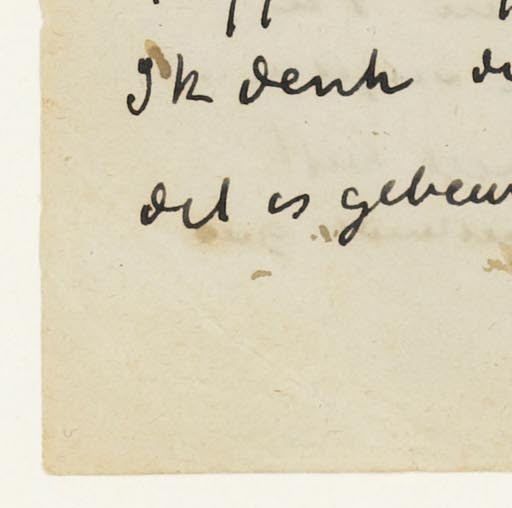 Ik denk
dit is gebeur